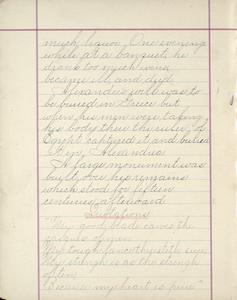 much liquor. One evening
while at a banquet he
drank too much wine
became ill, and died.
Alexander's will was to
be buried in Greece but
when his men were taking
his body thru the ruler, of
Egypt captured it and buried
it in Alexandria
A large monument was
built over his remains
which stood for fifteen
centuries afterward
Quotations
"My good blade carves the
casques of men
My tough lance thrusteth sure
My strength is as the strength
of ten
Because my heart is pure"